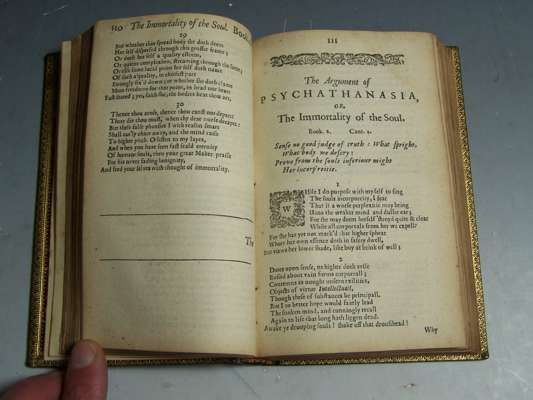 110 The Immortality of the Soul. Book
29
But whether thus spread body she doth deem
Her self dispersed through this grosser frame;
Or doth her self a quality esteem,
Or queint complexion, streaming through the same;
Or else some lucid point her self doth name
Of such a quality, in chiefest part
Strongly
More freedome for that point, in
Fast sinned; yet, saith she, the bodies heat thou art,
30
Thence thou arose, thence thou canst not depart:
There die thou must, when thy dear nurse decayes:
But these false phansies I with reason smart
Shall easly chace away, and the mind raise
To higher pitch O listen to my layes,
And when you have seen fast seald eternity
Of humane souls, then your great Maker praise
For his never fading benignity,
And feed your selves with thought of immortality.
The
111
The Argument of
PSYCHATHANASIA,
OR,
The Immortality of the Soul.
Book. 2. Cant. 1.
Sense no good judge of truth: What spright,
What body we descry:
Prove from the souls inferiour might
Her incorporeitie.
1
While I do purpose with my self to sing
The souls incorporeity, I fear
That it a worse perplexitie may bring
Unto the weaker mind and duller ear;
For she may deem herself 'stroyd quite & clear
While all corporeals from her we expell:
For she has yet not mark'd that higher sphear
Where her own essence doth in safety dwell,
But views her lower shade, like boy at brink of well;
2
Dotes upon sense, ne higher doth arise
Busied about vain forms corporeall;
Contemns as nought unseen realities,
Objects of virtue Intellectuall,
Though these of substances be principall.
But I no better hope would fairly lead
The sunken mind, and cunningly recall
Again to life that long hath liggen dead.
Awake ye drooping souls! shake off that drousihead!
Why